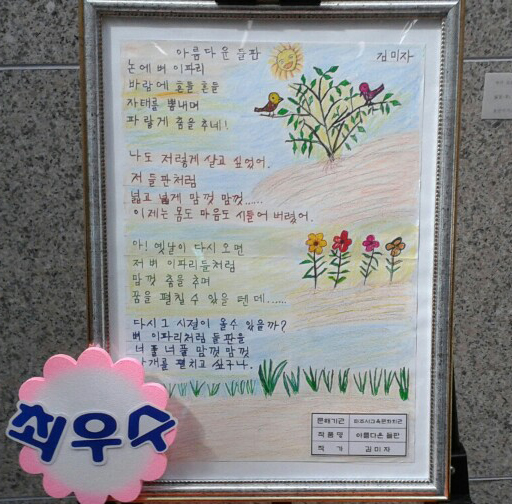 아름다운 들판
김미자
논에 벼 이파리
바람에 흔들 흔들
자태를 뽐내며
파랗게 춤을 추네!
나도 저렇게 살고 싶었어.
저 들판처럼
넓고 넓게 맘껏 맘껏......
이제는 몸도 마음도 시들어 버렸어.
아! 옛날이 다시 오면
저 벼 이파리들처럼
맘껏 춤을 추며
꿈을 펼칠 수 있을 텐데......
다시 그 시절이 올수 있을까?
벼 이파리처럼 들판을
너풀 너풀 맘껏 맘껏
나래를 펼치고 싶구나.
최우수
문해기관
작품명 아름다운 들판
작가 김미자